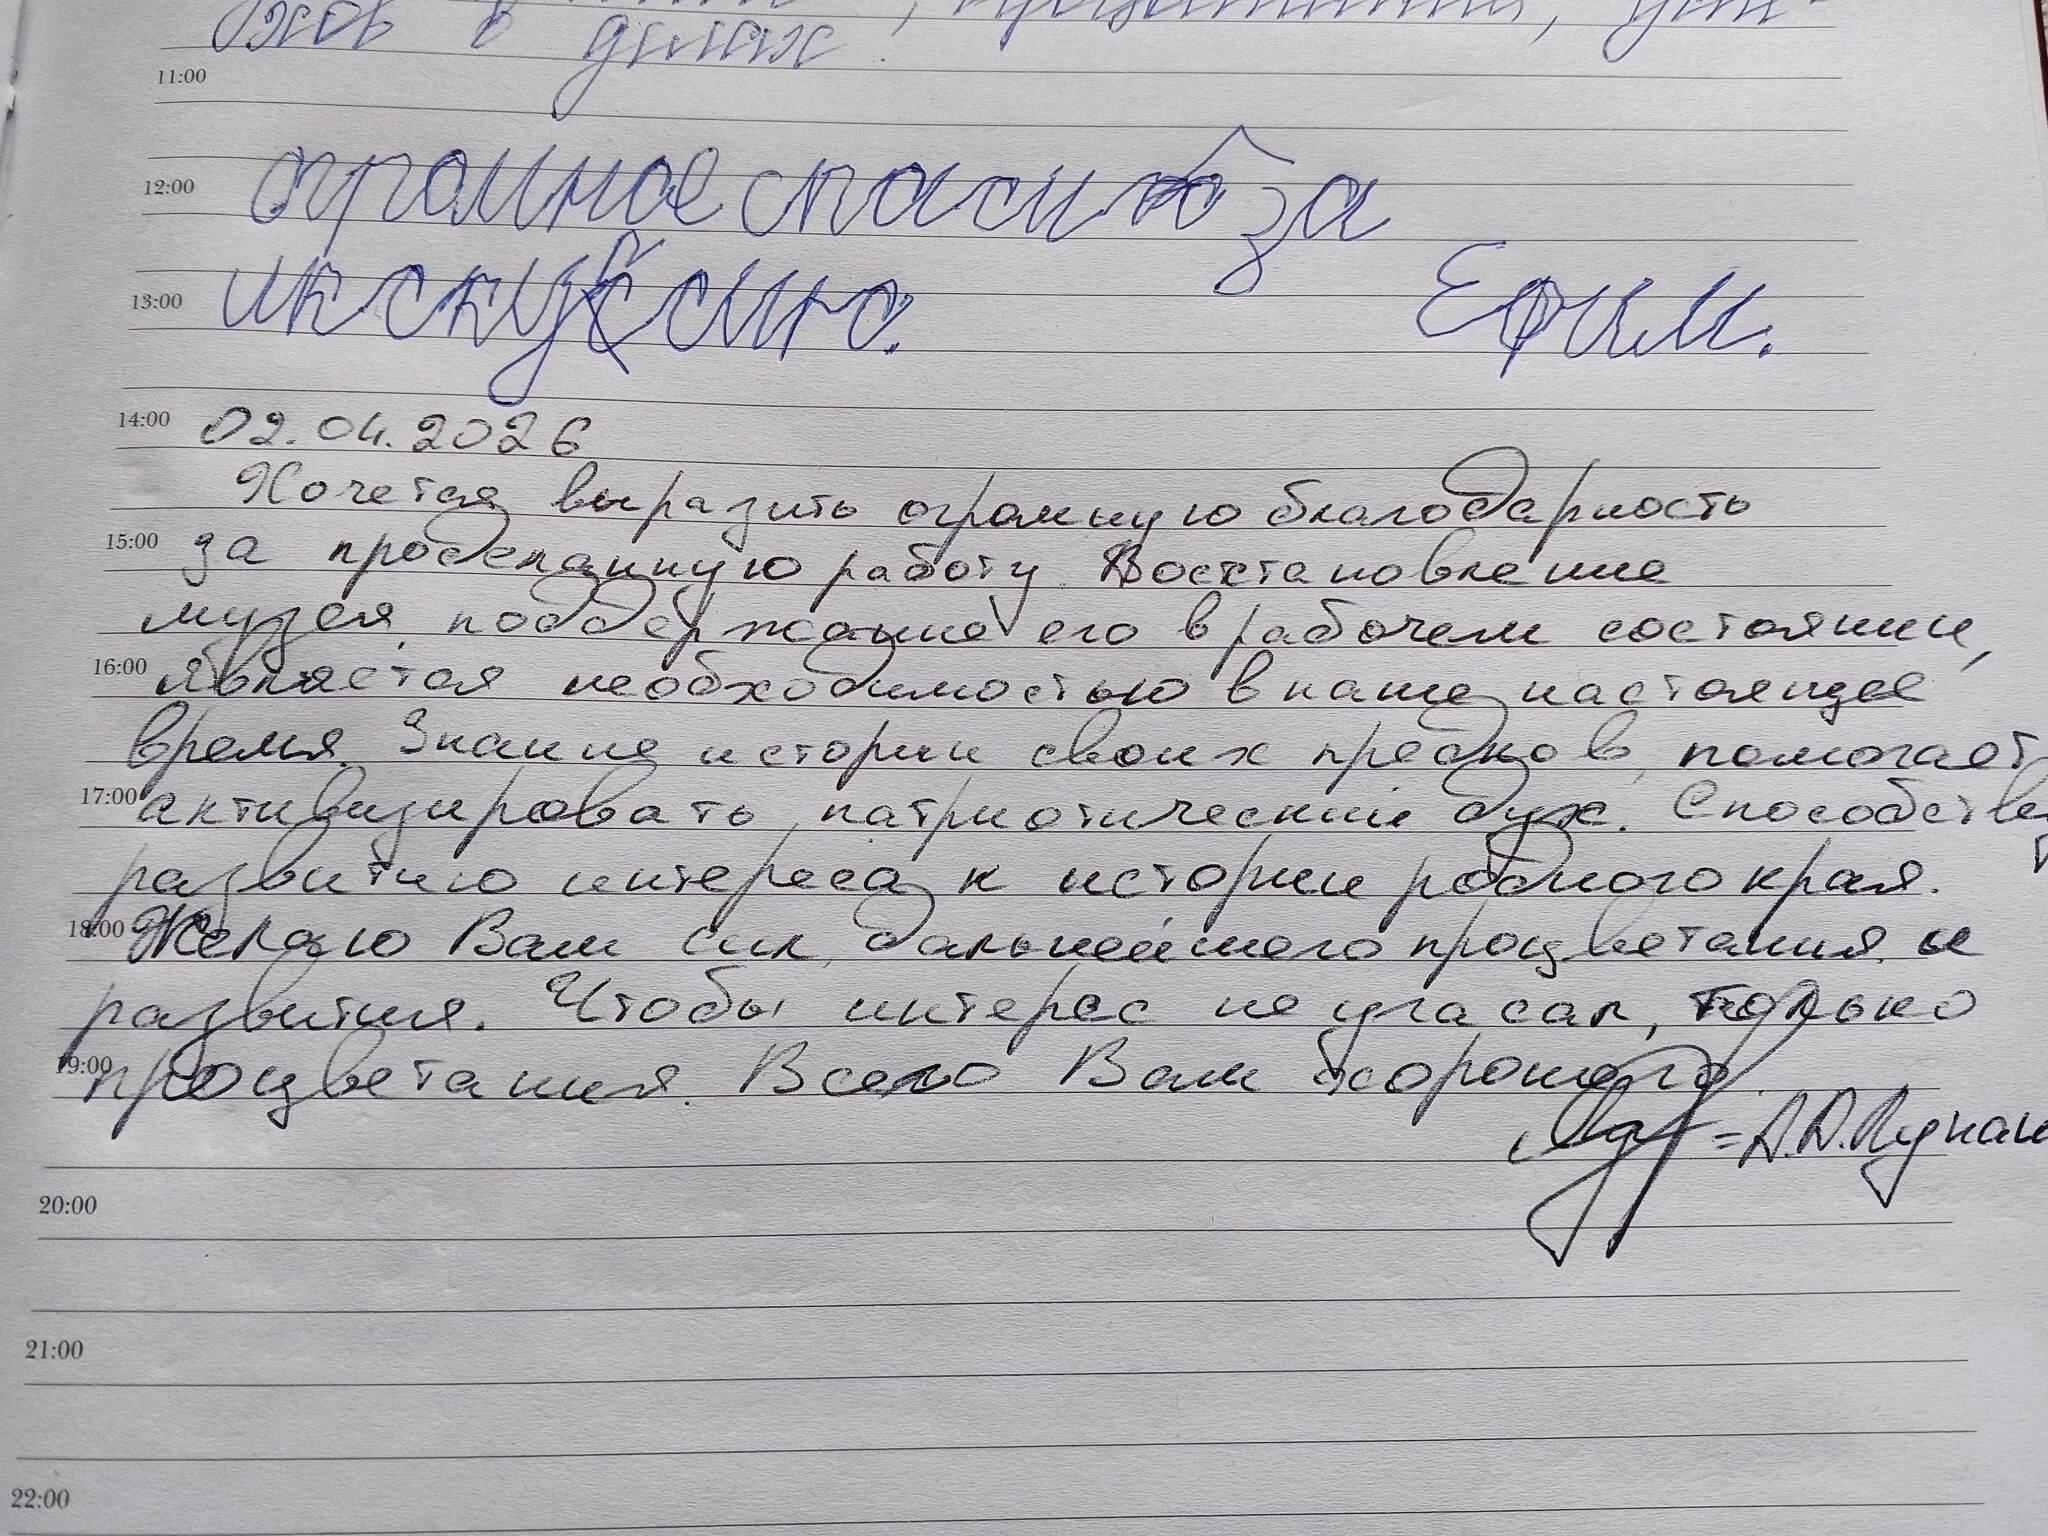 хов в делах.
11:00
огромное спасибо за
12:00
икскурсию.
Ефим.
13:00
14:00 02.04.2026
Хочется выразить огромную благодарность
15:00 за проделанную работу. Восстановление
музея, поддержание его в рабочем состоянии,
16:00 является необходимостью в наше настоящее
время. Знание истории своих предков, помогает
17:00 активизировать патриотический дух. Способствует
развитию интереса к истории родного края.
18:00 Желаю Вам сил, дальнейшего процветания и
развития. Чтобы интерес не угасал, только
19:00 процветания. Всего Вам хорошего.
20:00
21:00
22:00